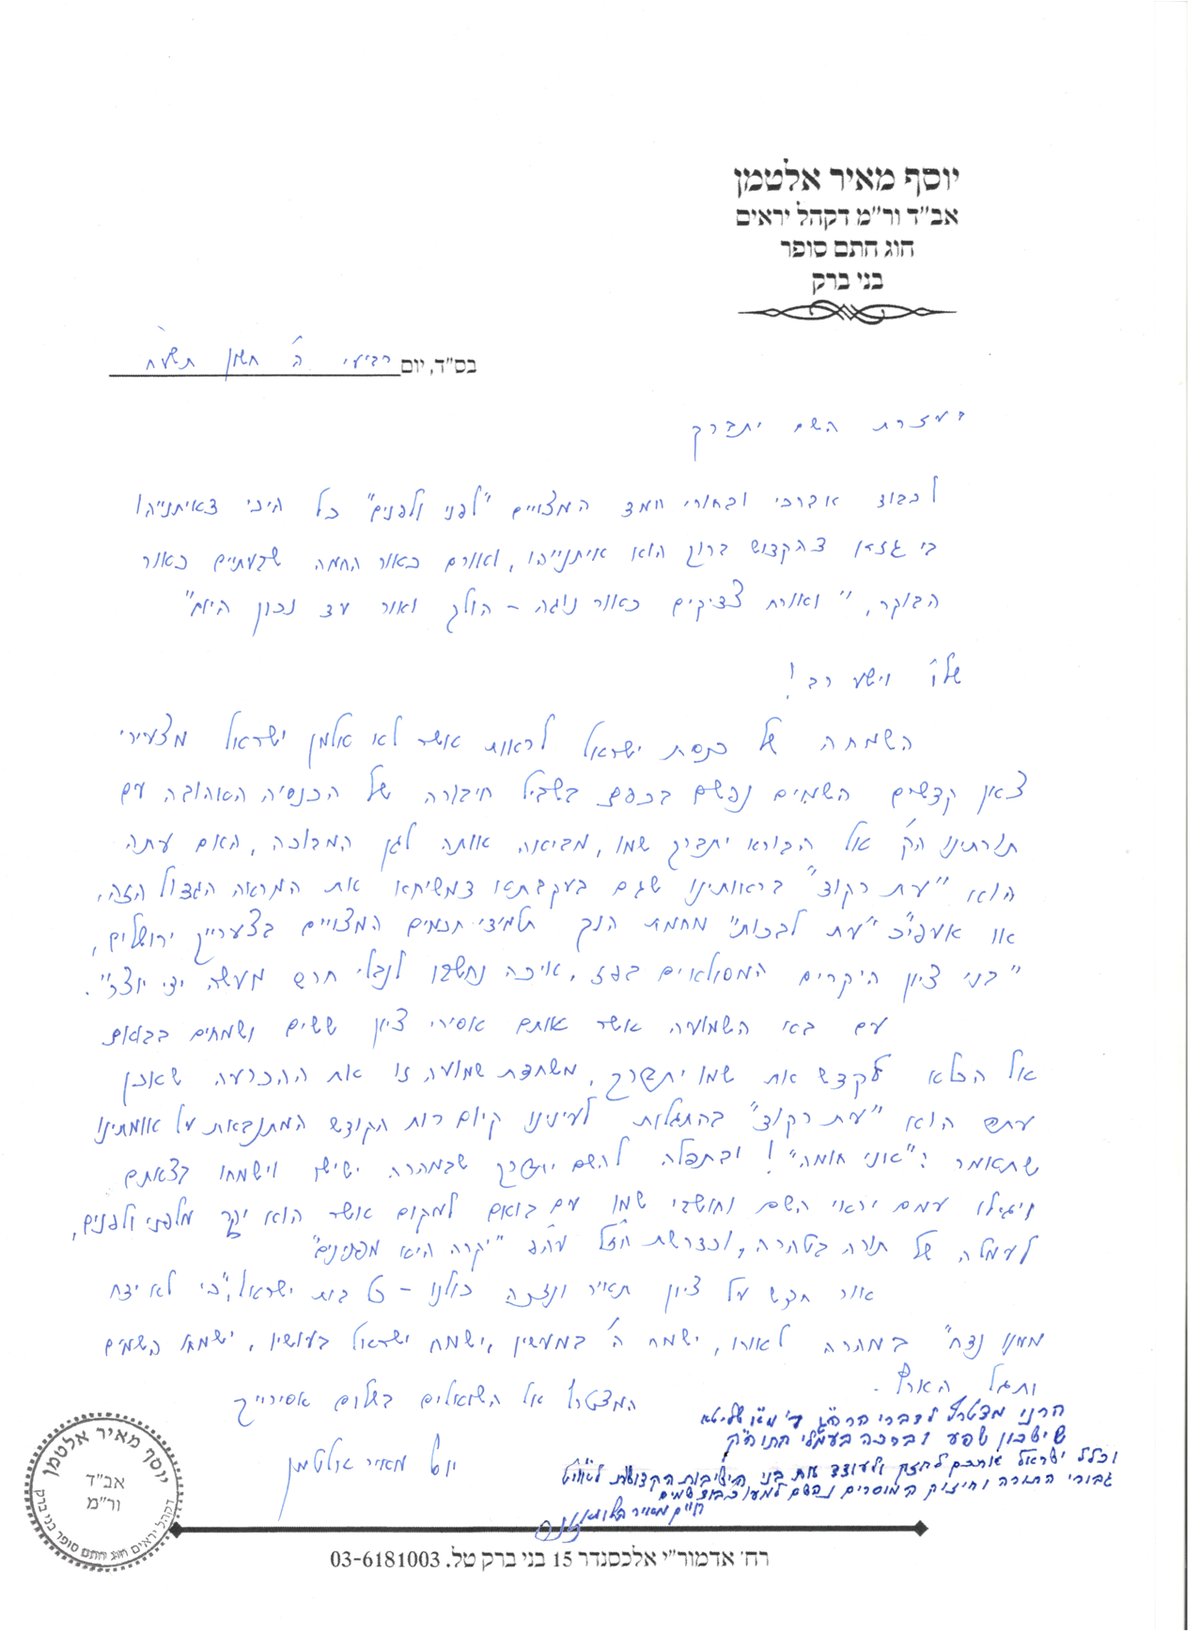 יוסף מאיר אלטמן
אב"ד ור"מ דקהל יראים
חוג חתם סופר
בני ברק
בס"ד, יום רביעי ה' חשון תשע"ח
בעזרת השם יתברך
לכבוד אברכי ובחורי חמד המצויים "לפני ולפנים" כל היכי דאיתנייהו
בי גזזא דהקדוש ברוך הוא איתנייהו, ואורם כאור החמה שבעתיים כאור
הבוקר, "ואורח צדיקים כאור נוגה - הולך ואור עד נכון היום"
שלו' וישע רב!
השמחה של כנסת ישראל לראות אשר לא אלמן ישראל מצעירי
צאן קדשים השמים נפשם בכפם בשביל חיבורה של הכנסיה האהובה עם
תורתינו הק' אל הבורא יתברך שמו, מביאה אותה לגן המבוכה, האם עתה
הוא "עת רקוד" בראותינו שגם בעקבתא דמשיחא את המראה הגדול הזה,
או אעפ"כ "עת לבכות" מחמת הנך תלמידי חכמים המצויים בצערייך ירושלים,
"בני ציון היקרים המסולאים בפז, איכה נחשבו לנבלי חרש מעשה ידי יוצר".
עם בא השמועה אשר אותם אסירי ציון ששים ושמחים בבואם
אל הכלא לקדש את שמו יתברך, משחדת שמועה זו את ההכרעה שאכן
עתה הוא "עת רקוד" בהתגלות לעינינו קיום רוח הקודש המתנבאת על אומתינו
שתאמר: "אני חומה"! ובתפלה להשם יתברך שבמהרה ישישו וישמחו בצאתם
ויגילו עמם יראי השם וחושבי שמו עם בואם למקום אשר הוא יקר מלפני ולפנים,
לעמלה של תורה בטהרה, וכדרשת חז"ל עה"פ "יקרה היא מפנינים"
אור חדש על ציון תאיר ונזכה כולנו - כל בית ישראל, "כי לא ידח
ממנו נדח" במהרה לאורו, ישמח ה' במעשיו, ישמח ישראל בעושיו, ישמחו השמים
ותגל הארץ.
המצטרף אל השואלים בשלום אסירייך
יוסף מאיר אלטמן
הרני מצטרף לדברי הרה"ג ר' מאיר שליט"א
שישכון שפע וברכה בעמלי התוה"ק
וכלל ישראל לחזק ולעודד את בני הישיבות הקדושות
גבורי התורה וחיזוק המוסרים נפשם למען כבוד שמים
חיים מאיר
יוסף מאיר אלטמן
אב"ד
ור"מ
דקהל יראים חוג חתם סופר בני ברק
רח' אדמור"י אלכסנדר 15 בני ברק טל. 03-6181003